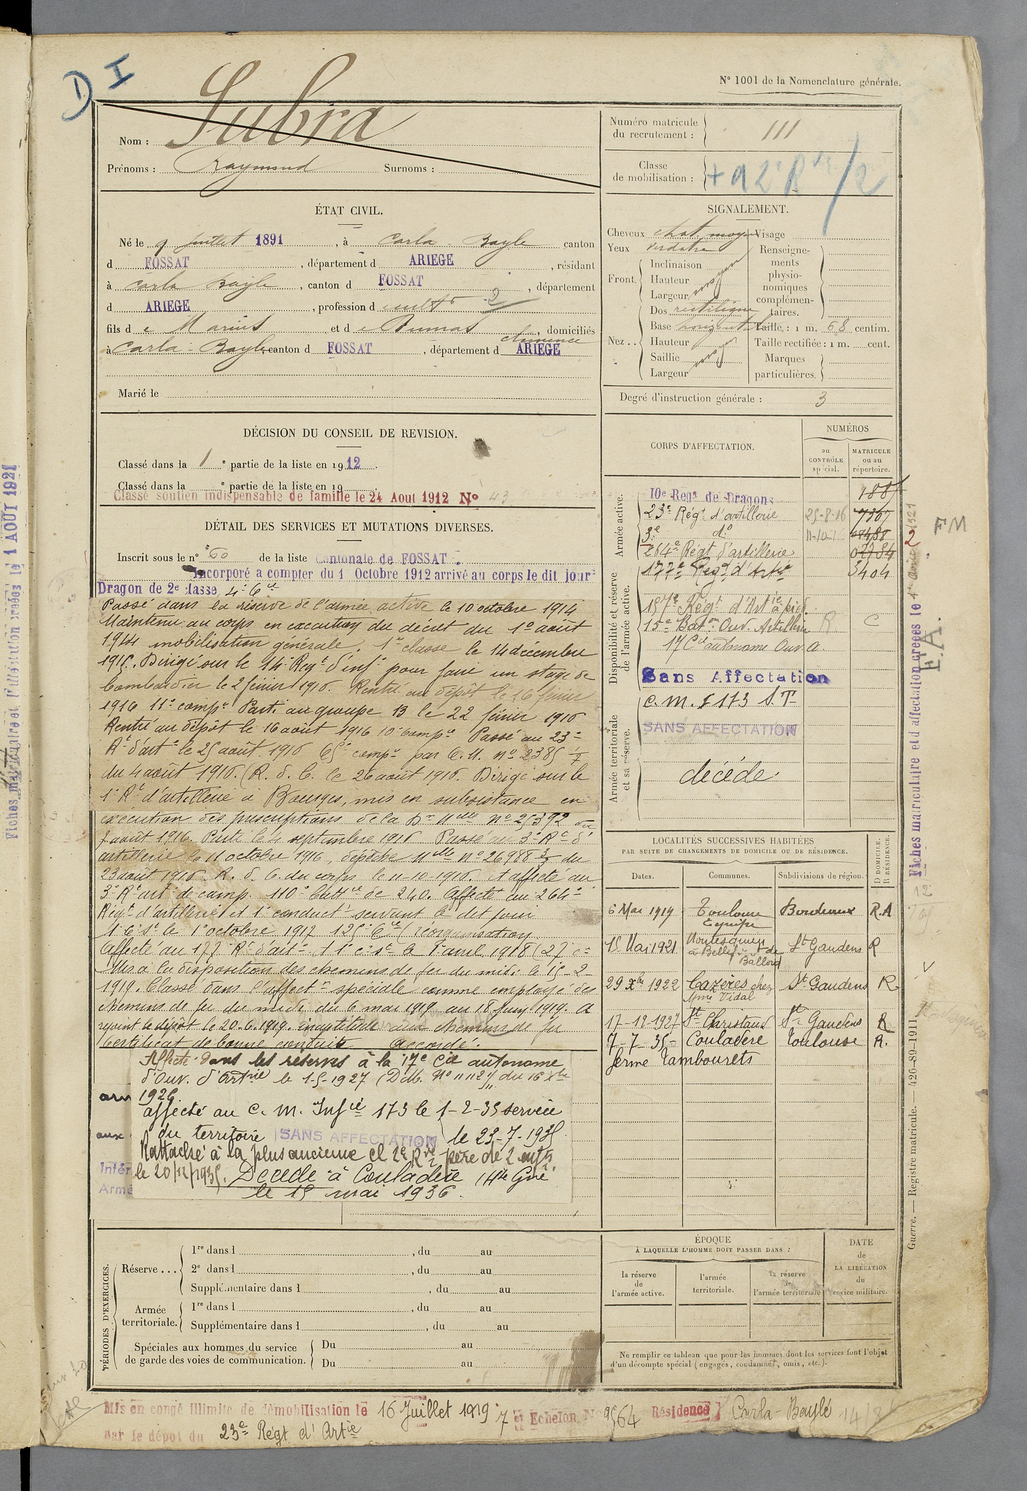 D I
N° 1001 de la Nomenclature générale.
Nom : Subra
Prénoms : Raymond Surnoms :
Numéro matricule du recrutement : 111
Classe de mobilisation :
ÉTAT CIVIL.
Né le 9 juillet 1891, à Carla-Bayle canton
d FOSSAT, département d ARIEGE, résidant
à Carla Bayle, canton d FOSSAT, département
d ARIEGE, profession d cultr 2
fils d e Marius et d e Dumas Clémence, domiciliés
à Carla-Bayle, canton d FOSSAT, département d ARIEGE
Marié le
SIGNALEMENT.
Cheveux chat. moyen Visage
Yeux verdâtre Renseigne-
ments
physio-
nomiques
complémen-
taires.
Front. Inclinaison
Hauteur moy
Largeur
Nez.. Dos rectiligne
Base horizontale Taille : 1 m. 68 centim.
Hauteur Taille rectifiée : 1 m. cent.
Saillie moy Marques
Largeur particulières.
Degré d'instruction générale : 3
DÉCISION DU CONSEIL DE REVISION.
Classé dans la 1 e partie de la liste en 1912.
Classé dans la e partie de la liste en 19
Classé soutien indispensable de famille le 24 Aout 1912 N° 43
DÉTAIL DES SERVICES ET MUTATIONS DIVERSES.
Inscrit sous le n° 60 de la liste Cantonale de FOSSAT.
Incorporé a compter du 1 Octobre 1912 arrivé au corps le dit jour
Dragon de 2e classe
Passé dans la réserve de l'armée active le 10 octobre 1914
Maintenu au corps en exécution du décret du 1er août
1914 mobilisation générale. 1e classe le 14 décembre
1915. Dirigé sur le 14e Régt d'Inf pour faire un stage de
bombardier le 2 février 1916. Rentré au dépôt le 16 février
1916 11e comp. Parti au groupe B le 22 février 1916
Rentré au dépôt le 16 août 1916 10e comp. Passé au 23e
Rt d'art le 25 août 1916 65e comp par C.M. no 2385
du 4 août 1916. (R. d. C. le 26 août 1916. Dirigé sur le
1er Rt d'artillerie à Bourges, mis en subsistance en
exécution des prescriptions de la Don Mlle no 25372 du
août 1916. Parti le 4 septembre 1916 Passé au 3e Rt d'
artillerie le 11 octobre 1916, dépêche Mlle no 26988 3/3 du
23 août 1916. R. d. C. du corps le 11-10-1916. Affecté au
3e Rt art de camp. 110e Battie de 240. Affecté au 264e
Régt d'artillerie et 1er conduct servant le dit jour
1er c. st le 1er octobre 1917 125e Bie (réorganisation
Affecté au 177e Rt d'art 11e c. st le 1er avril 1918 (27e c
Mis à la disposition des chemins de fer du midi le 15-2-
1919. Classé dans l'affect spéciale comme employé des
chemins de fer du midi du 6 mai 1919 au 18 juin 1919. A
rejoint le dépôt le 20.6.1919. inaptitude aux chemins de fer
Certificat de bonne conduite accordé.
Affecté dans les réserves à la 17e Cie autonome
d'Ouv. d'Artrie le 1-5-1927
1926.
affecté au C. M. Infie 173 le 1-2-35 service
du territoire SANS AFFECTATION le 23-7-1935
Rattaché à la plus ancienne cl 2e Rve père de 2 enfts
le 20/12/1935. Décédé à Couladère (Hte Gne)
le 15 mai 1936.
CORPS D'AFFECTATION.
NUMÉROS
au CONTRÔLE spécial.
MATRICULE ou au répertoire.
Armée active.
10e Regt de Dragons 1887
23e Régt d'artillerie 25-8-16 7367
3e do 11-10-1
264e Régt d'artillerie 02784
177e Régt d'Artie 5404
Disponibilité et réserve de l'armée active.
157e Régt d'Artie à pied
15e Baton Ouv. Artillerie R C
17 Cie autonome Ouv. a.
Sans Affectation
C.M. I 173 S.T
Armée territoriale et sa réserve.
SANS AFFECTATION
décédé
LOCALITÉS SUCCESSIVES HABITÉES
PAR SUITE DE CHANGEMENTS DE DOMICILE OU DE RÉSIDENCE.
Dates. Communes. Subdivisions de région. D DOMICILE. R RÉSIDENCE.
6 Mai 1919 Toulouse Equipe Bordeaux R.A
15 Mai 1921 Montesquieu St Gaudens R
29 Xbre 1922 Cazères chez Mme Vidal St Gaudens R
17-12-1927 St Christaud St Gaudens R
7-7-35 Couladère Toulouse R.
ferme Tambourets
PÉRIODES D'EXERCICES.
Réserve ... 1re dans l , du au
2e dans l , du au
Supplémentaire dans l , du au
Armée territoriale. 1re dans l , du au
Supplémentaire dans l , du au
Spéciales aux hommes du service de garde des voies de communication. Du au
Du au
ÉPOQUE
À LAQUELLE L'HOMME DOIT PASSER DANS :
la réserve de l'armée active.
l'armée territoriale.
la réserve de l'armée territoriale
DATE de LA LIBÉRATION du service militaire.
Ne remplir ce tableau que pour les hommes dont les services font l'objet
d'un décompte spécial (engagés, condamnés, omis, etc.).
Mis en congé illimité de démobilisation le 16 Juillet 1919 7 e Echelon N° 9564 Résidence Carla-Bayle
par le dépot du 23e Régt d'Artie
Fiches matriculaire et d'affectation créées le 1 AOUT 1921
Guerre. — Registre matricule. — 426-89-1911.
F.A.
FM